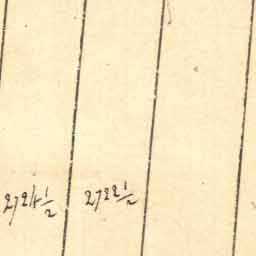 2724½ 2722½